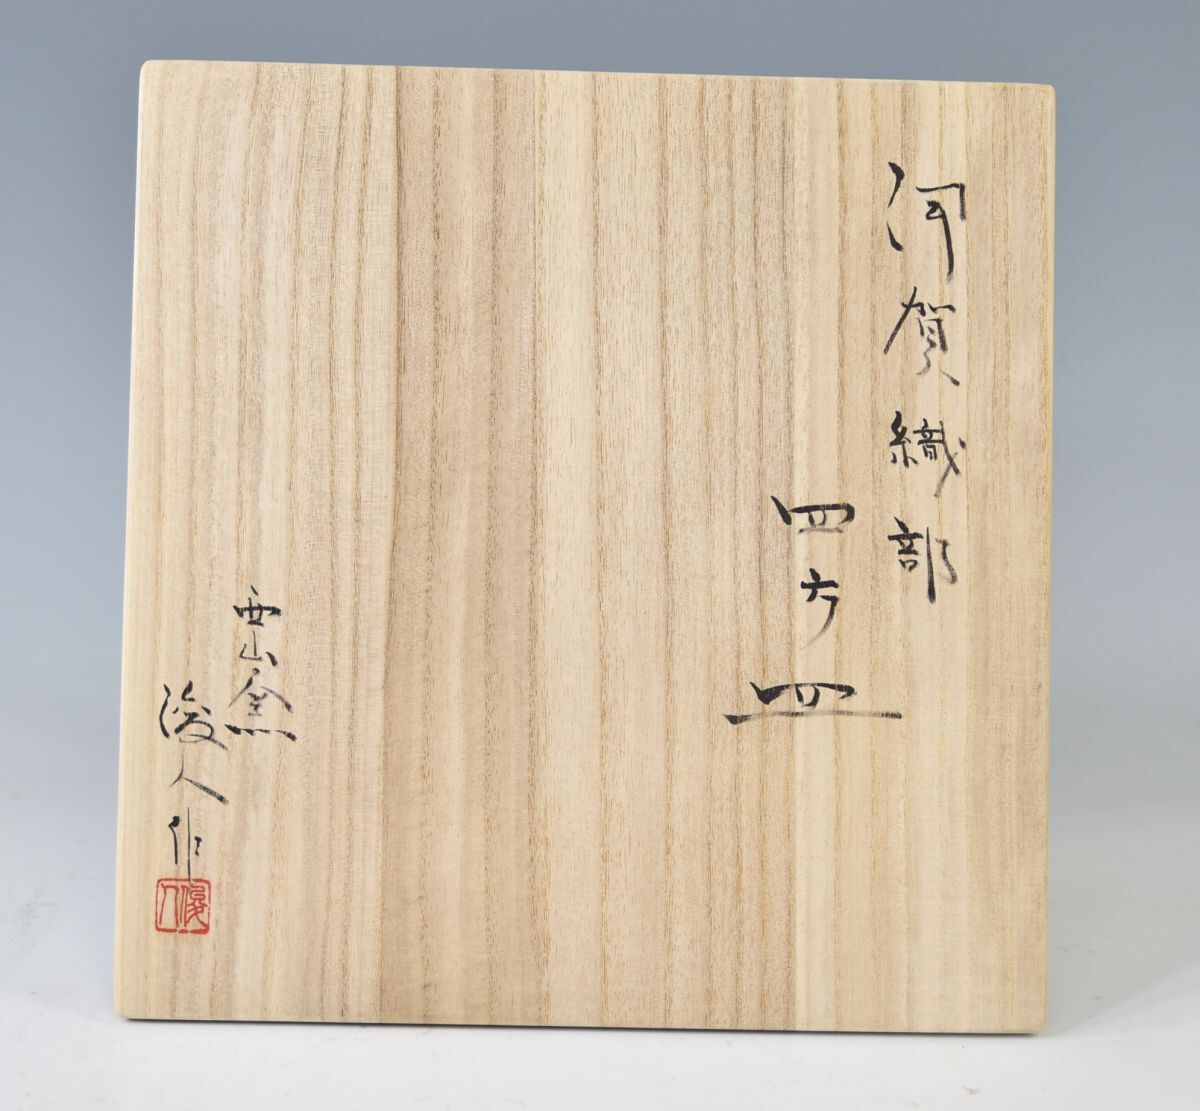 河賀織部
四方皿
西山窯
俊人作
俊人